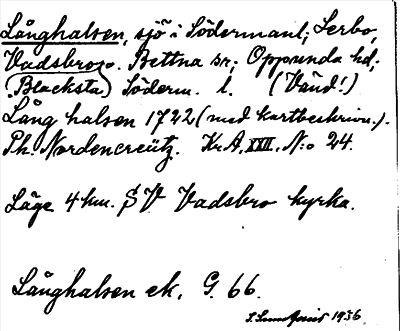 Långhalsen, sjö i Södermanl; Lerbo,
Vadsbro o. Bettna sr; Oppunda hd;
(Blacksta) Söderm. l. (Vänd!)
Lång halsen 1722 (med kartbeskrivn.).
Ph. Nordencreütz. Kr. A. XXII. N:o 24.
Läge 4 km. SV Vadsbro kyrka.
Långhalsen ek. G. 66.
1936